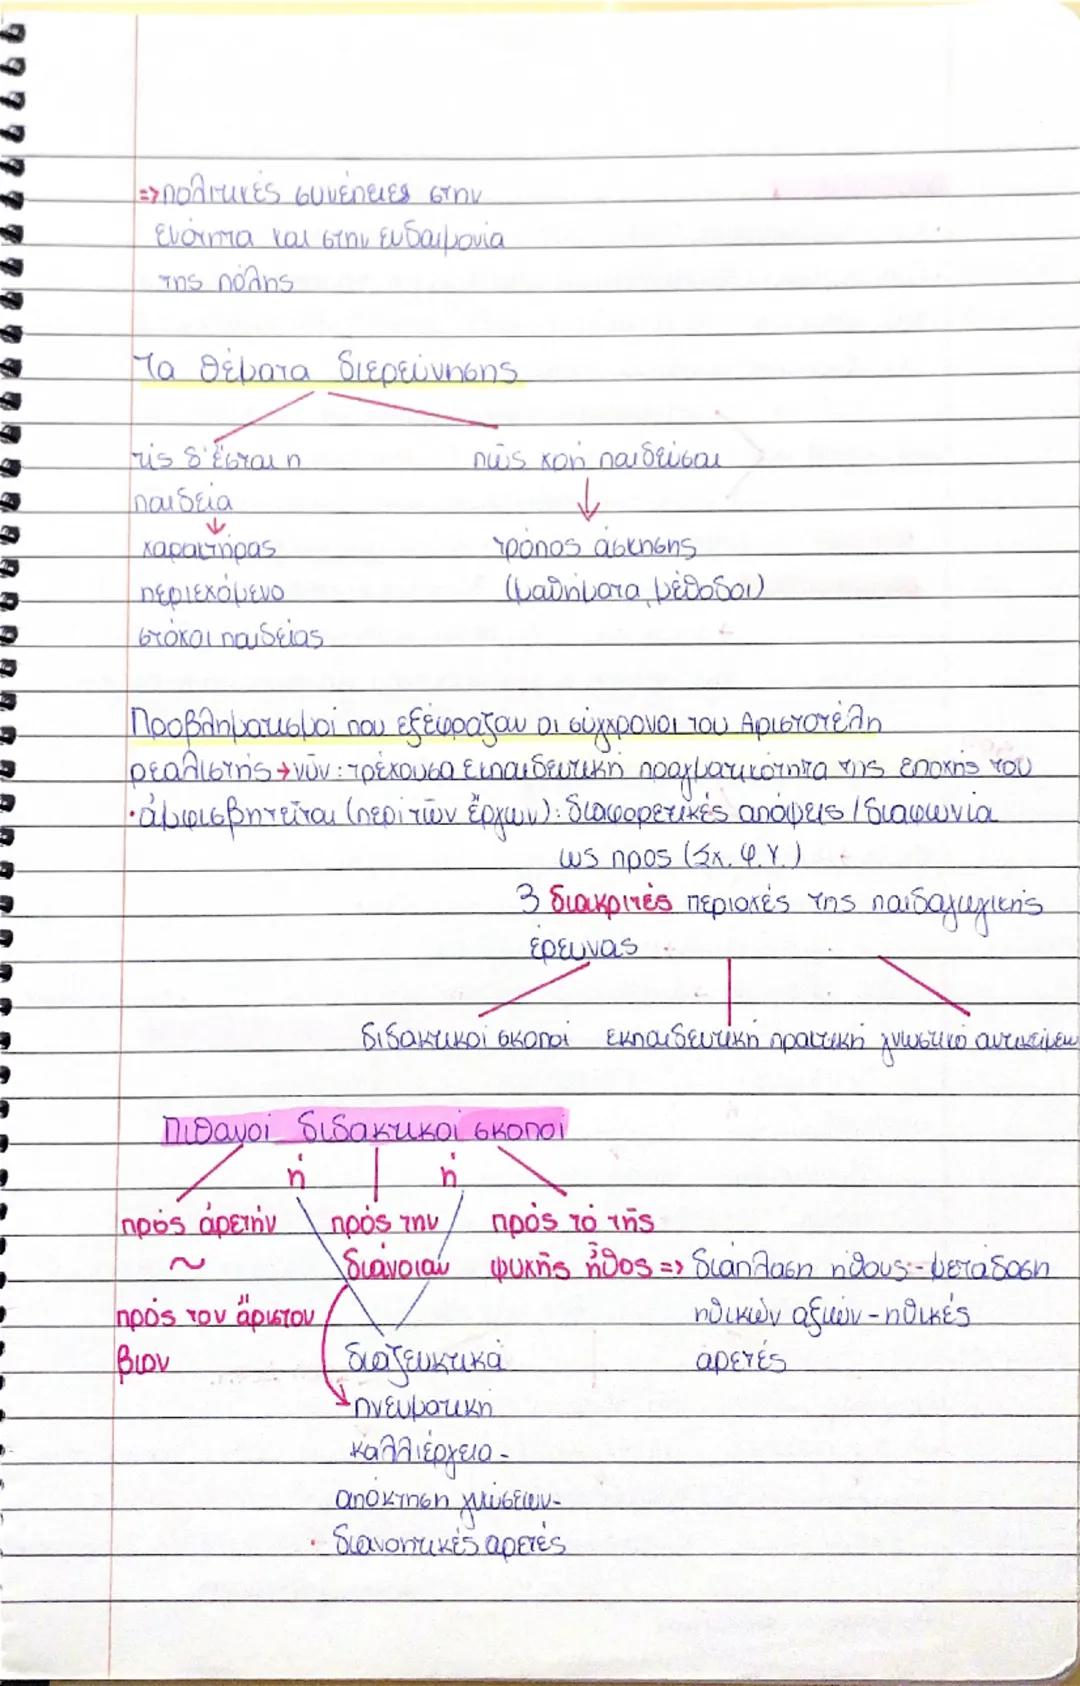 => πολιτικές συνέπειες στην
ενότητα και στην ευδαιμονία
της πόλης
Τα θέματα διερεύνησης
τίς δ'ἔσται ἡ πῶς χρή παιδεύεσαι
παιδεία
↓ ↓
χαρακτήρας τρόπος άσκησης
περιεχόμενο (μαθήματα, μέθοδοι)
στόχοι παιδείας
Προβληματισμοί που εξέφραζαν οι σύγχρονοι του Αριστοτέλη
ρεαλιστής → νῦν: τρέχουσα εκπαιδευτική πραγματικότητα της εποχής του
• ἀμφισβητεῖται (περί τῶν ἔργων): διαφορετικές απόψεις / διαφωνία
ως προς (Σχ. Φ.Υ.)
3 διακριτές περιοχές της παιδαγωγικής
έρευνας
διδακτικοί σκοποί εκπαιδευτική πρακτική γνωστικό αντικείμεν
Πιθανοί διδακτικοί σκοποί
ή ή
πρός ἀρετήν πρός την πρός τό τῆς
~ διάνοιαν ψυχῆς ἦθος => διάπλαση ήθους - μετάδοση
πρός τον ἄριστον ηθικών αξιών - ηθικές
βιον διαζευκτικά αρετές
πνευματική
καλλιέργεια -
απόκτηση γνώσεων -
διανοητικές αρετές